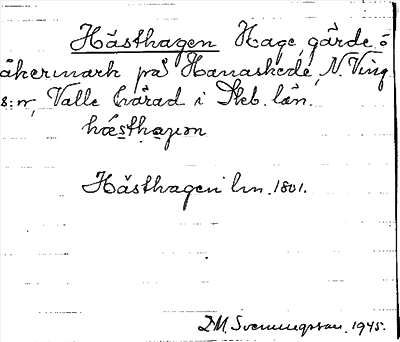 Hästhagen Hage, gärde o
åkermark på Hanaskede, N. Ving
s:n, Valle härad i Skb. län.
hæsthaɡən
Hästhagen lm. 1801.
D.M. Svenningsson. 1945.